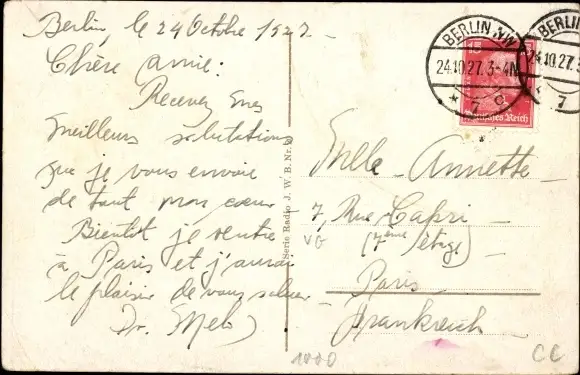 Berlin, le 24 Octobre 1927.
Chère amie:
Recevez mes
meilleurs salutations
que je vous envoie
de tout mon cœur.
Bientôt je rentre
à Paris et j'aurai
le plaisir de vous saluer
Dr.
Serie Radio J. W. B. Nr.
BERLIN NW
24.10.27. 3-4N
* 7 c
BERLIN
24.10.27. 3
7
15
Deutsches Reich
Mlle - Annette
7, Rue Capri
(7ème étage)
Paris
Frankreich
VG
1000
CC